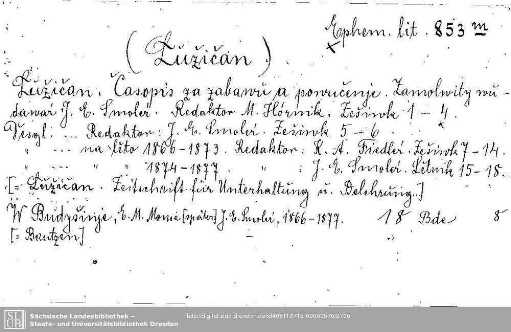 Ephem. lit. 853 m
(Łužičan.)
Łužičan. Časopis za zabawu a powučenje. Zamołwity wu-
dawaŕ J. E. Smoleŕ. Redaktor M. Hórnik. Zešiwk 1 - 4.
... Redaktor: J. E. Smoleŕ. Zešiwk 5 - 6
" ... na lěto 1866-1873. Redaktor: K. A. Fiedleŕ. Zešiwk 7-14.
" ... " " 1874-1877 " : J. E. Smoleŕ. Lětnik 15-18.
[= Łužičan. Zeitschrift für Unterhaltung u. Belehrung..]
W Budyšinje, E. M. Monse [später] J. E. Smoleŕ, 1866-1877. 18 Bde 8
[= Bautzen]
SLUB
Sächsische Landesbibliothek –
Staats- und Universitätsbibliothek Dresden